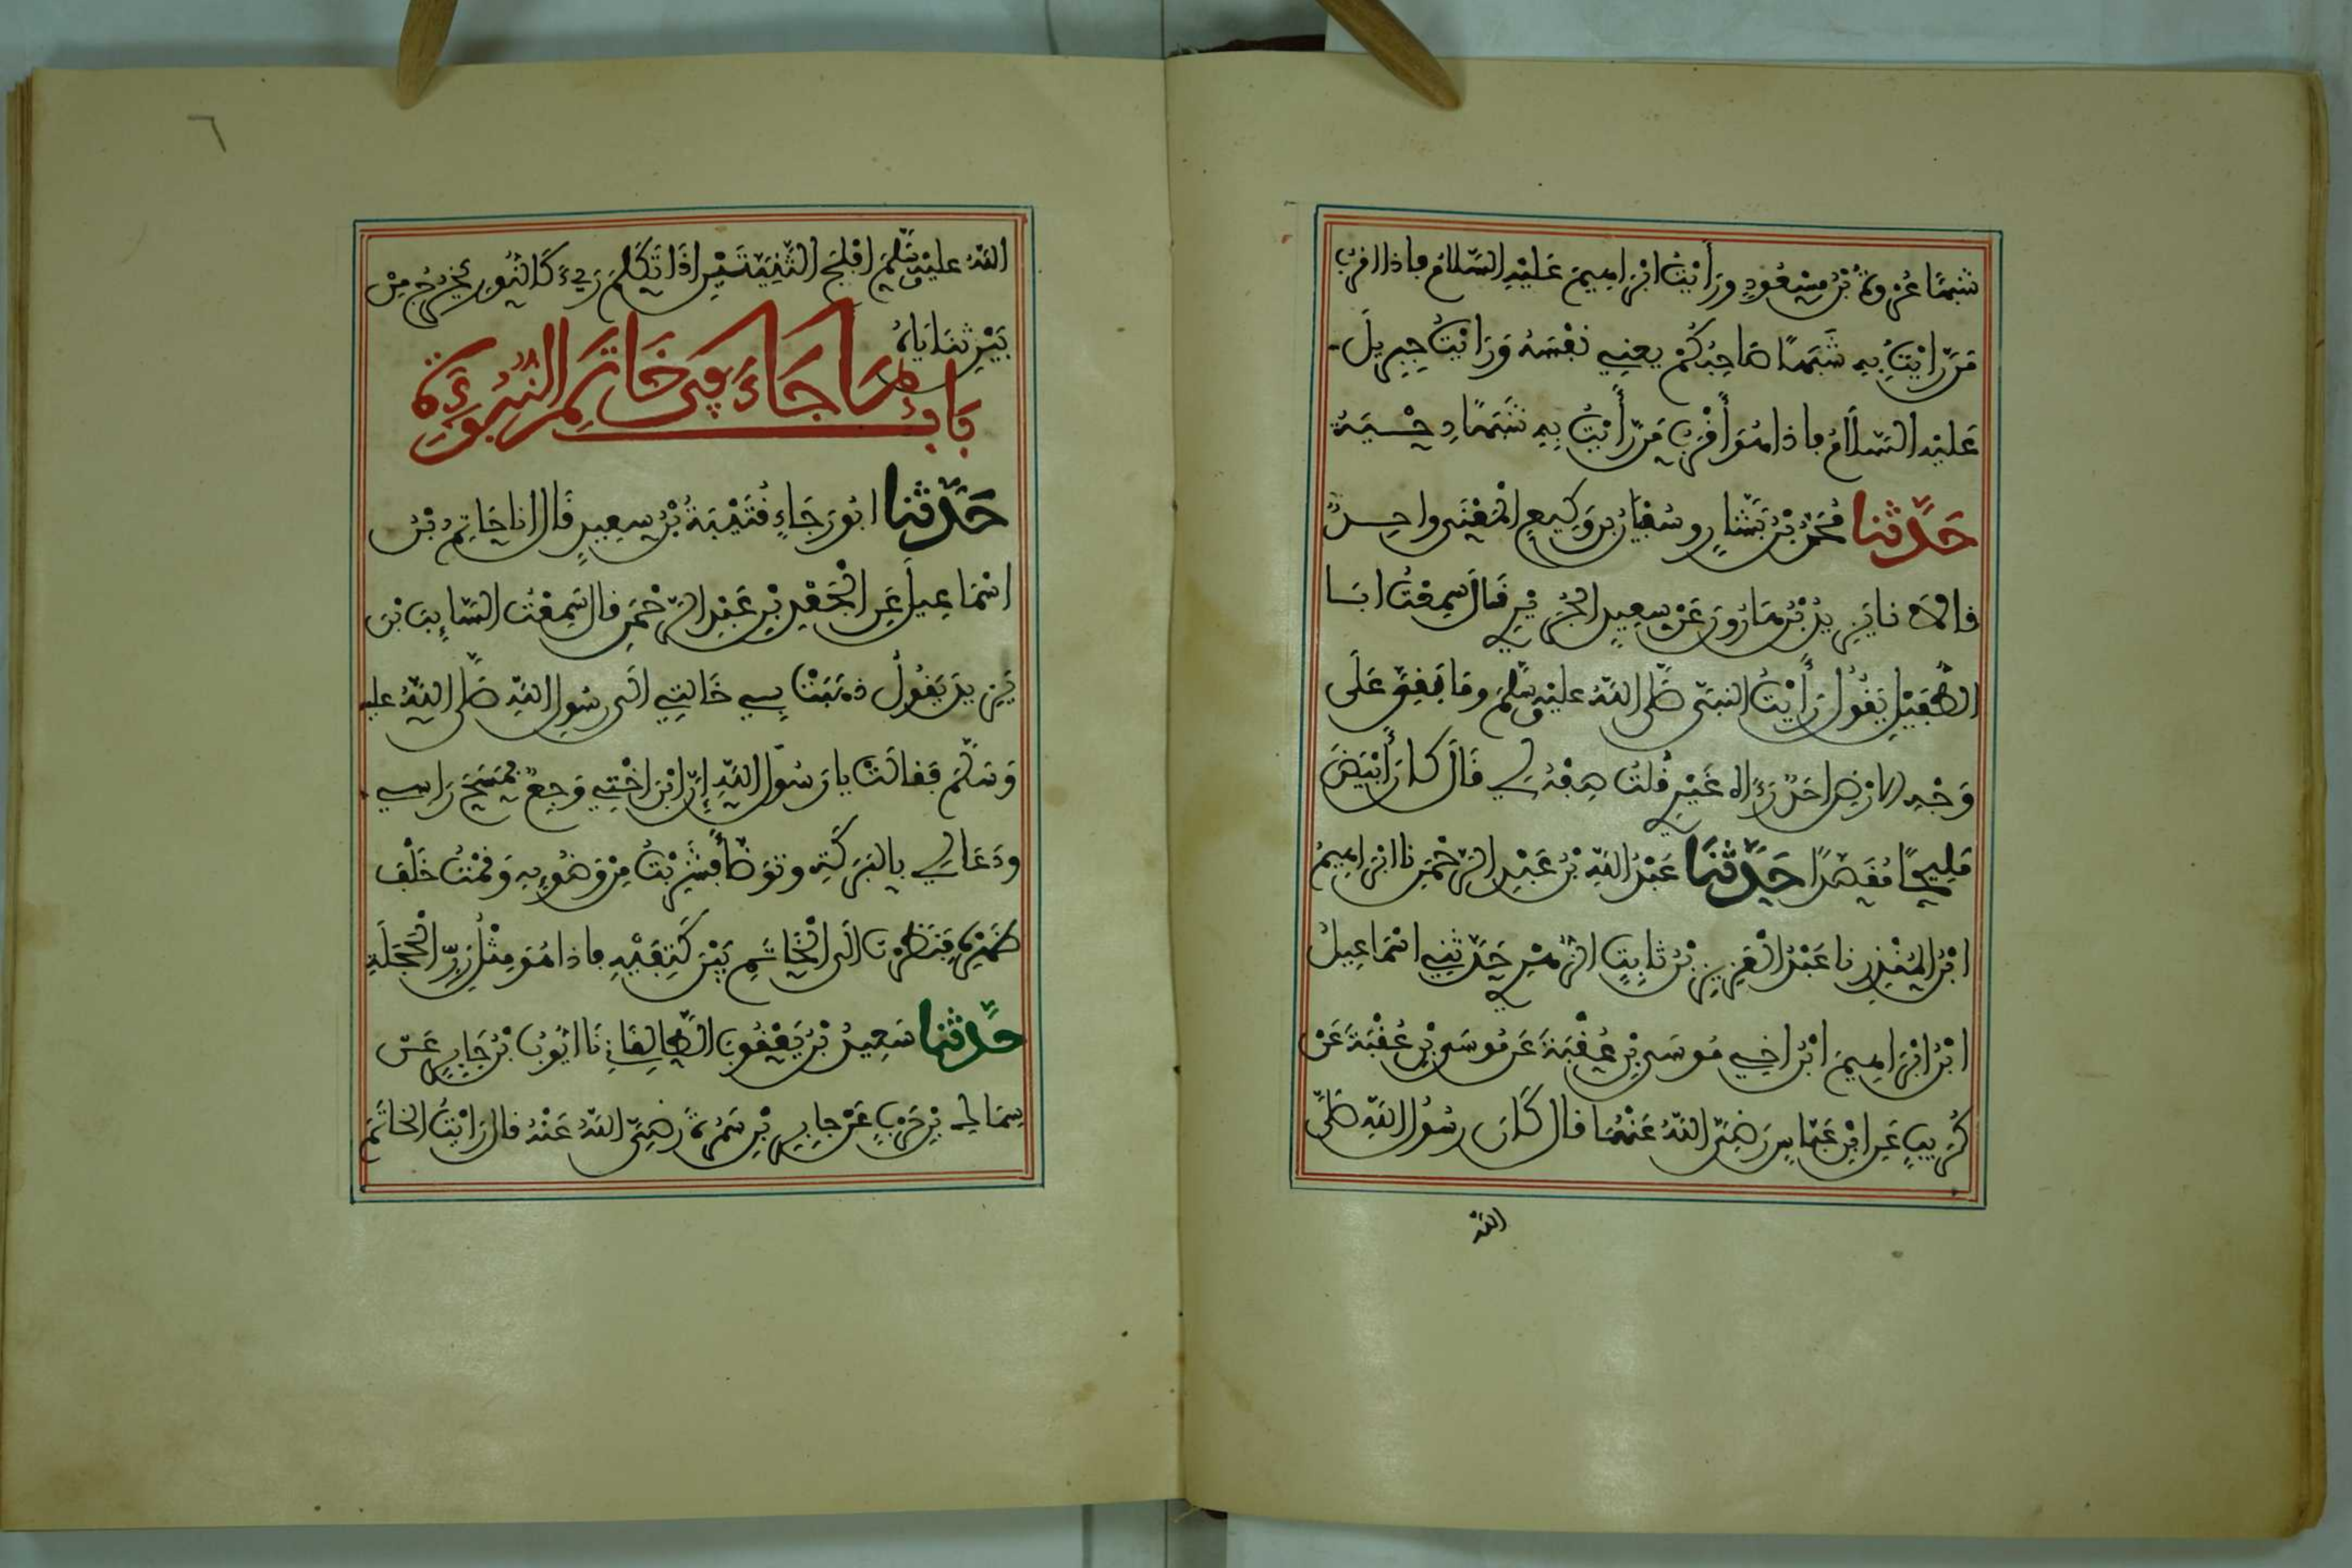 شبها عروة بن مسعود ورأيت ابراهيم عليه السلام فاذا اقرب
من رايت به شبها صاحبكم يعني نفسه ورايت جبريل
عليه السلام فاذا هو أقرب من رأيت به شبها دحية
حدثنا محمد بن بشار وسفيان بن وكيع المعنى واحد
قالا نا يزيد بن هارون عن سعيد الجريري قال سمعت ابا
الطفيل يقول رأيت النبي صلى الله عليه وسلم وما بقي على
وجه الارض احد رءاه غيري قلت صفه لي قال كان أبيض
مليحا مقصدا حدثنا عبد الله بن عبد الرحمن نا ابراهيم
ابن المنذر نا عبد العزيز بن ثابت الزهري حدثني اسماعيل
ابن ابراهيم ابن اخي موسى بن عقبة عن موسى بن عقبة عن
كريب عن ابن عباس رضي الله عنهما قال كان رسول الله صلى
الله
٦
الله عليه وسلم افلج الثنيتين اذا تكلم رءي كالنور يخرج من
بين ثناياه
باب ما جاء في خاتم النبوءة
حدثنا ابو رجاء قتيبة بن سعيد قال انا حاتم بن
اسماعيل عن الجعد بن عبد الرحمن قال سمعت السايب بن
يزيد يقول ذهبت بي خالتي الى رسول الله صلى الله عليه
وسلم فقالت يا رسول الله إن ابن اختي وجع فمسح راسي
ودعا لي بالبركة وتوضأ فشربت من وضوءه وقمت خلف
ظهره فنظرت الى الخاتم بين كتفيه فاذا هو مثل زر الحجلة
حدثنا سعيد بن يعقوب الطالقاني نا ايوب بن جابر عن
سماك بن حرب عن جابر بن سمرة رضي الله عنه قال رايت الخاتم